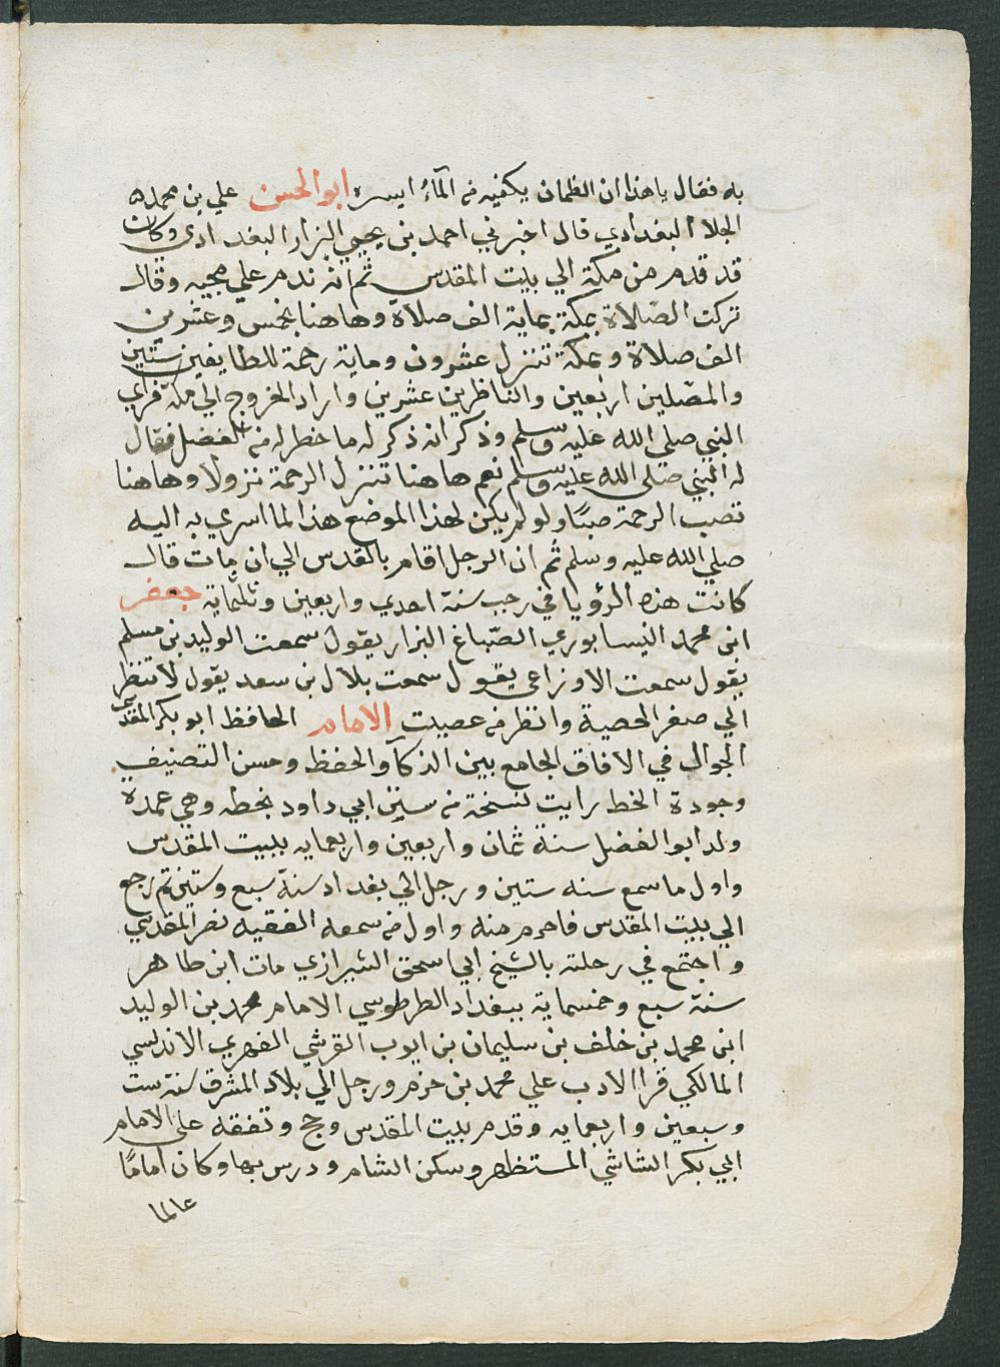 به فقال يا هذا ان الظمان يكفيه من المآء ايسره ابو الحسن علي بن محمد
الجلا البغدادي قال اخبرني احمد بن يحيي البزار البغدادي وكان
قد قدم من مكة الي بيت المقدس ثم انه ندم علي مجيه وقال
تركت الصّلاة بمكة بماية الف صلاة وها هنا بخمس وعشرين
الف صلاة وبمكة تنزل عشرون وماية رحمة للطايفين ستين
والمصّلين اربعين والناظرين عشرين واراد الخروج الي مكة فراي
النبي صلي الله عليه وسلم وذكر انه ذكر له ما خطر له من الفضل فقال
له النبي صلي الله عليه وسلم نعم ها هنا تنزل الرحمة نزولا وها هنا
تصب الرحمة صبًا ولو لم يكن لهذا الموضع هذا لما اسري به اليه
صلي الله عليه وسلم ثم ان الرجل اقام بالمقدس الي ان مات قال
كانت هذه الرؤيا في رجب سنة احدي واربعين وثلثماية جعفر
ابن محمد النيسابوري الصّباغ البزار يقول سمعت الوليد بن مسلم
يقول سمعت الاوزاعي يقول سمعت بلال بن سعد يقول لا تنظر
الي صغر الخصية وانظر من عصيت الامام الحافظ ابو بكر المقدسي
الجوال في الافاق الجامع بين الذكآ والحفظ وحسن التصنيف
وجودة الخط رايت نسخة من سنن ابي داود بخطه وهي عمدة
ولد ابو الفضل سنة ثمان واربعين واربعمايه ببيت المقدس
واول ما سمع سنه ستين ورحل الي بغداد سنة سبع وستين ثم رجع
الي بيت المقدس فاحرم منه واول من سمعه الفقيه نصر المقدسي
واجتمع في رحلته بالشيخ ابي اسحق الشيرازي مات ابن طاهر
سنة سبع وخمسماية ببغداد الطرطوسي الامام محمد بن الوليد
ابن محمد بن خلف بن سليمان بن ايوب القرشي الفهري الاندلسي
المالكي قرا الادب علي محمد بن حزم ورحل الي بلاد المشرق سنة ست
وسبعين واربعمايه وقدم بيت المقدس وحج وتفقه علي الامام
ابي بكر الشاشي المستظهر وسكن الشام ودرس بها وكان امامًا
عالما